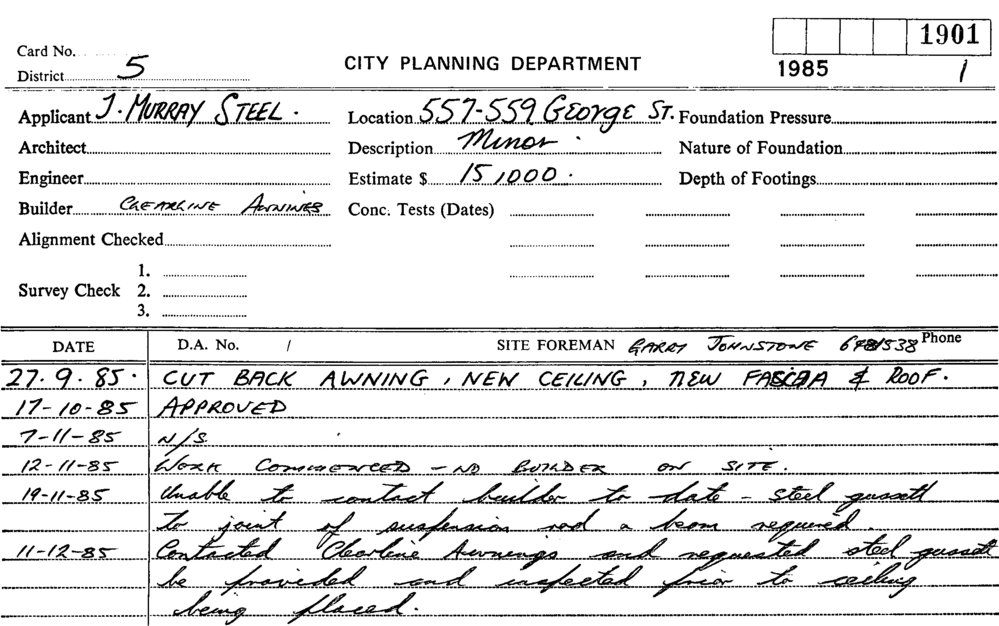 1901
Card No.
District 5
CITY PLANNING DEPARTMENT
1985 1
Applicant J. MURRAY STEEL. Location 557-559 GEORGE ST. Foundation Pressure
Architect Description Minor Nature of Foundation
Engineer Estimate $ 15,000. Depth of Footings
Builder CLEARLINE AWNINGS Conc. Tests (Dates)
Alignment Checked
1.
Survey Check 2.
3.
DATE D.A. No. / SITE FOREMAN GARRY JOHNSTONE Phone
27.9.85. CUT BACK AWNING, NEW CEILING, NEW FASCIA & ROOF.
17-10-85 APPROVED
7-11-85 N/S.
12-11-85 WORK COMMENCED - NO BUILDER ON SITE.
19-11-85 Unable to contact builder to date - steel gussett
to joint of suspension rod a beam required.
11-12-85 Contacted Clearline Awnings and requested steel gussett
be provided and inspected prior to ceiling
being placed.